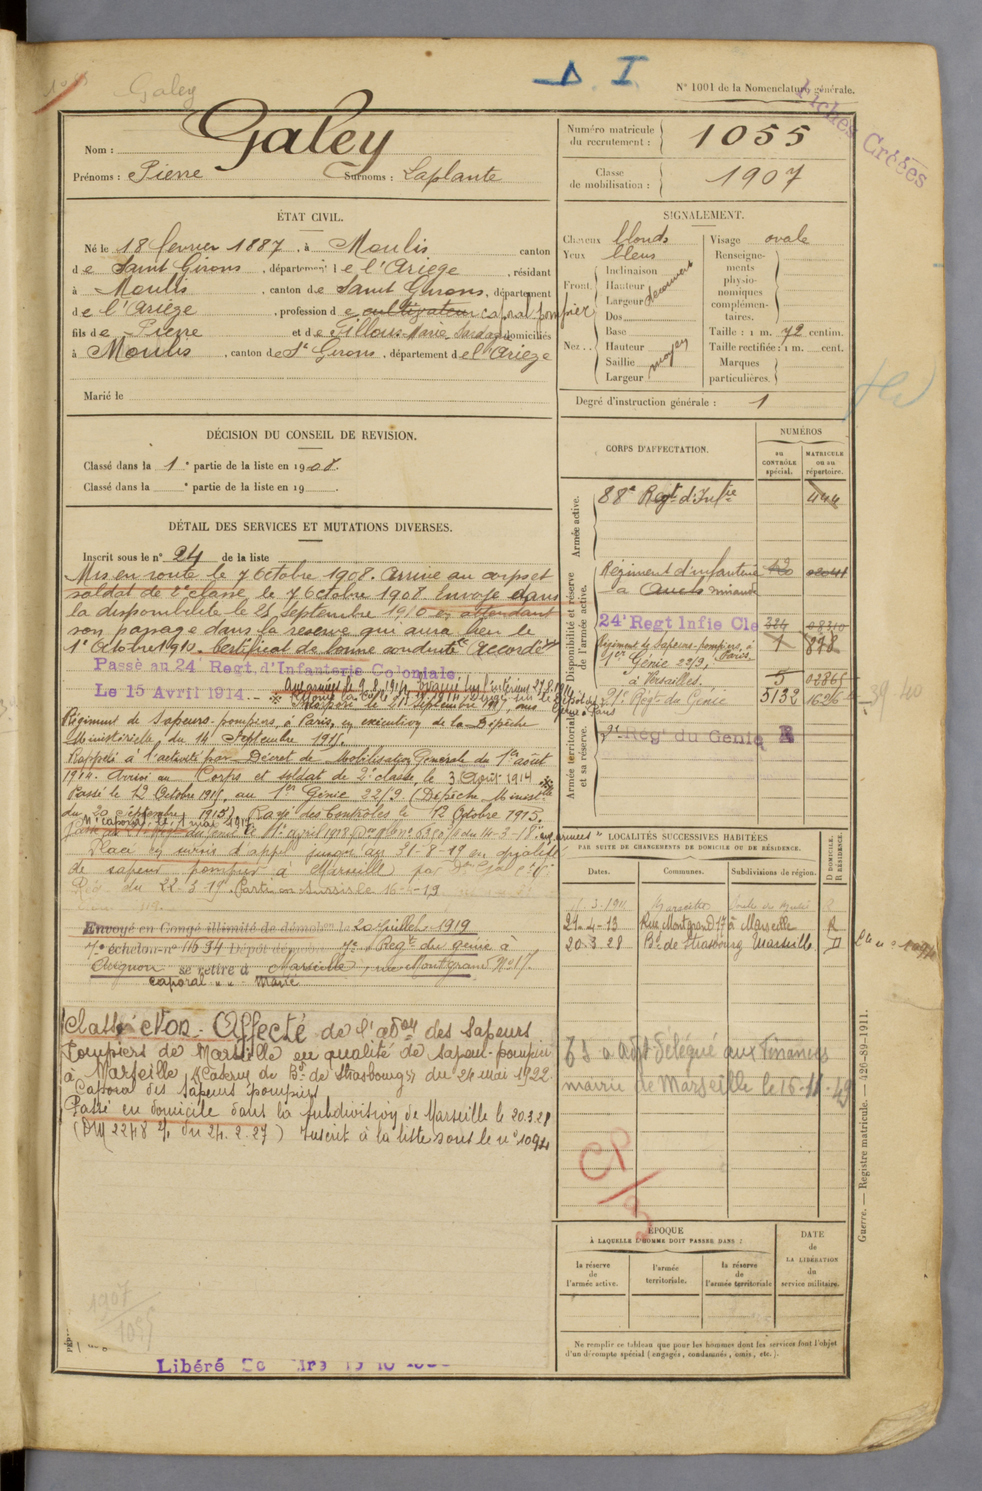 Galey
D. I.
N° 1001 de la Nomenclature générale.
Fiches Créées
Nom : Galey
Prénoms : Pierre Surnoms : Laplante
Numéro matricule du recrutement : 1055
Classe de mobilisation : 1907
ÉTAT CIVIL.
Né le 18 février 1887, à Moulis canton
de Saint Girons, département de l'Ariège, résidant
à Moulis, canton de Saint Girons, département
de l'Ariège, profession de cultivateur caporal pompier
fils de Pierre et de domiciliés
à Moulis, canton de St Girons, département de l'Ariège
Marié le
SIGNALEMENT.
Cheveux blonds
Yeux bleus
Front.
Inclinaison
Hauteur
Largeur découvert
Nez..
Dos
Base
Hauteur
Saillie moyen
Largeur
Visage ovale
Renseignements physionomiques complémentaires.
Taille : 1 m. 72 centim.
Taille rectifiée : 1 m. cent.
Marques particulières.
Degré d'instruction générale : 1
DÉCISION DU CONSEIL DE REVISION.
Classé dans la 1e partie de la liste en 1908.
Classé dans la e partie de la liste en 19
DÉTAIL DES SERVICES ET MUTATIONS DIVERSES.
Inscrit sous le n° 24 de la liste
Mis en route le 7 Octobre 1908. Arrivé au corps et
soldat de 2e classe, le 7 Octobre 1908. Envoyé dans
la disponibilité le 25 Septembre 1910 en attendant
son passage dans la réserve qui aura lieu le
1er Octobre 1910. Certificat de bonne conduite Accordé
Passé au 24e Regt. d'Infanterie Coloniale,
Le 15 Avril 1914.
Régiment de Sapeurs-pompiers, à Paris, en exécution de la Dépêche
Ministérielle, du 14 Septembre 1915.
Rappelé à l'activité par Décret de Mobilisation Générale du 1er août
1914. Arrivé au Corps et soldat de 2e classe, le 3 Août 1914
Passé le 12 Octobre 1915, au 1er Génie 22/9 (Dépêche Ministlle
du 20 Septembre 1915) Rayé des Contrôles le 12 Octobre 1915.
Placé en sursis d'appel jusqu'au 31-8-19 en qualité
de sapeur pompier à Marseille par
du 22-3-19. Parti en sursis le 16-4-19
Envoyé en Congé illimité de démobon le 20 Juillet 1919
7e échelon-n° 11694 Dépôt démobr 7e Regt du génie à
Avignon se retire à Marseille, rue Montgrand N° 17.
caporal Marié
Classé Non-Affecté de l'adon des Sapeurs
Pompiers de Marseille en qualité de sapeur-pompier
à Marseille (Caserne du Bd de Strasbourg) du 24 mai 1922
Caporal des Sapeurs pompiers
Passé en domicile dans la subdivision de Marseille le 20.3.28
(DM 2248 du 24.2.27) Inscrit à la liste sous le n° 1094
1907
1055
Libéré
CORPS D'AFFECTATION.
NUMÉROS
au CONTRÔLE spécial.
MATRICULE ou au répertoire.
Armée active.
88e Regt d'Infie 444
Disponibilité et réserve de l'armée active.
Régiment d'infanterie
à Auch mirande
24e Regt Infie Cle
Régiment de Sapeurs-pompiers, à Paris. 1 878
1er Génie 22/9,
à Versailles. 5 02865
Armée territoriale et sa réserve.
21e Regt du Génie 5132
7e Reg' du Génie R
39-40
LOCALITÉS SUCCESSIVES HABITÉES
PAR SUITE DE CHANGEMENTS DE DOMICILE OU DE RÉSIDENCE.
D DOMICILE. R RÉSIDENCE.
Dates. Communes. Subdivisions de région.
24-4-13 Rue Montgrand 17 à Marseille R
20-3-28 Bd de Strasbourg Marseille D
FS à Adjt Délégué aux Finances
mairie de Marseille le 16-11-49
ÉPOQUE
À LAQUELLE L'HOMME DOIT PASSER DANS :
la réserve de l'armée active.
l'armée territoriale.
la réserve de l'armée territoriale
DATE de LA LIBÉRATION du service militaire.
Ne remplir ce tableau que pour les hommes dont les services font l'objet
d'un décompte spécial (engagés, condamnés, omis, etc.).
Guerre. — Registre matricule. — 426-89-1911.